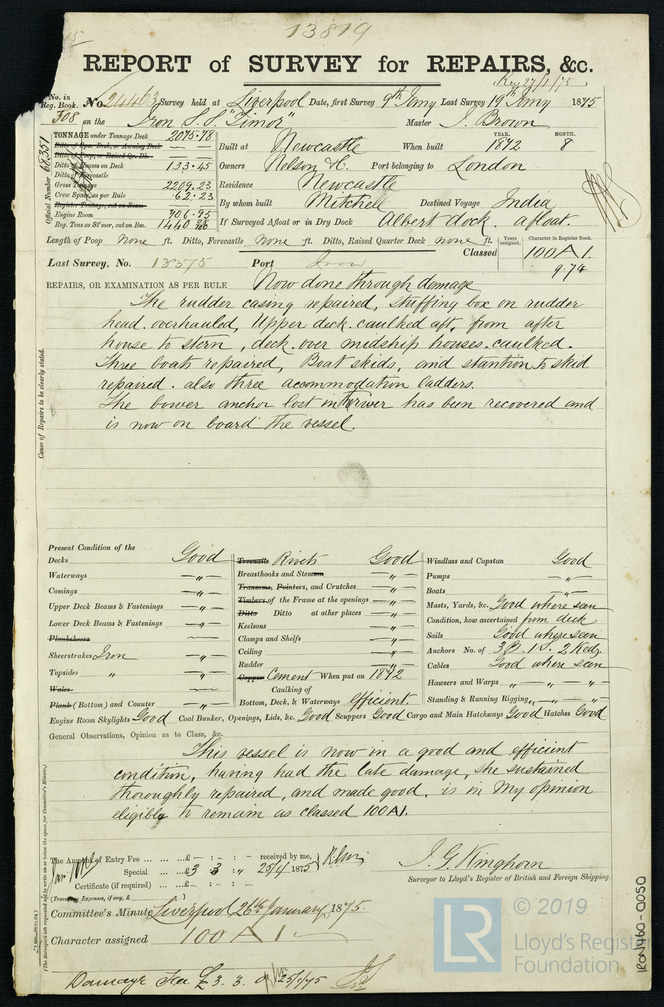 13819
REPORT of SURVEY for REPAIRS, &c.
Rec 27/1/75
No. in Reg. Book.
308
No. 24463 Survey held at Liverpool Date, first Survey 9th Jany Last Survey 19th Jany 1875
on the Iron S.S. "Timor" Master J. Brown
TONNAGE under Tonnage Deck 2075.78
Ditto of Spar Deck, or Awning Deck
Ditto of Poop, or Raised Qr. Dk.
Ditto of Houses on Deck 133.45
Ditto of Forecastle
Gross Tonnage 2209.23
Crew Space, as per Rule 62.23
Register Tonnage, cut on Beam
Engine Room 706.95
Reg. Tons as St'mer, cut on Bm. 1440
Official Number 68351
Built at Newcastle When built YEAR. 1872 MONTH. 8
Owners Nelson & C. Port belonging to London
Residence Newcastle
By whom built Mitchell Destined Voyage India
If Surveyed Afloat or in Dry Dock Albert dock. afloat.
Length of Poop None ft. Ditto, Forecastle None ft. Ditto, Raised Quarter Deck none ft.
Classed
Years assigned.
Character in Register Book.
100 A1.
9.74
Last Survey, No. 13575 Port Iron
REPAIRS, OR EXAMINATION AS PER RULE Now done through damage
The rudder casing repaired, Stuffing box on rudder
head overhauled, Upper deck caulked aft, from after
house to stern, deck over midship houses caulked.
Three boats repaired, Boat skids, and stantion to skid
repaired. also three accommodation ladders.
The bower anchor lost in the river has been recovered and
is now on board the vessel.
Cause of Repairs to be clearly stated.
Present Condition of the
Decks Good
Waterways — „ —
Comings — „ —
Upper Deck Beams & Fastenings — „ —
Lower Deck Beams & Fastenings — „ —
Planksheers
Sheerstrakes Iron — „ —
Topsides „ — „ —
Wales
Plank (Bottom) and Counter — „ —
Treenails Rivets Good
Breasthooks and Stemson — „ —
Transoms, Pointers, and Crutches — „ —
Timbers of the Frame at the openings — „ —
Ditto Ditto at other places — „ —
Keelsons — „ —
Clamps and Shelfs — „ —
Ceiling — „ —
Rudder — „ —
Copper Cement When put on 1872
Caulking of
Bottom, Deck, & Waterways Efficient.
Windlass and Capstan Good
Pumps — „ —
Boats — „ —
Masts, Yards, &c. Good where seen
Condition, how ascertained from deck
Sails Good where seen
Anchors No. of 3 B. 1 S. 2 Kedg.
Cables Good where seen
Hawsers and Warps „ — „ — „ —
Standing & Running Rigging „ — „ — „ —
Engine Room Skylights Good Coal Bunker, Openings, Lids, &c. Good Scuppers Good Cargo and Main Hatchways Good Hatches Good
General Observations, Opinion as to Class, &c.
This vessel is now in a good and efficient
condition, having had the late damage, she sustained
thoroughly repaired, and made good, is in My opinion
eligible to remain as classed 100A1.
(The Surveyors are requested not to write on or below the space for Committee's Minute.)
The Amount of Entry Fee ... ... ...£ - : - : - received by me,
Special ... ...£ 3 3 : „ 25/1/1875
Certificate (if required) ... ...£ - : - : -
(Travelling Expenses, if any, £ )
J. G. Kinghorn
Surveyor to Lloyd's Register of British and Foreign Shipping
Committee's Minute Liverpool 26th January 1875.
Character assigned 100 A1.
Damage Fee £3.3.0 25/1/75
IRON460-0050
LR
© 2019
Lloyd's Register
Foundation